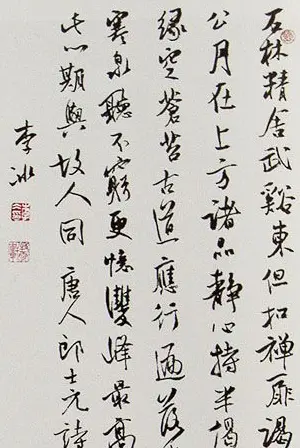 石林精舍武谿東但扣禪扉謁
公月在上方諸品靜心持半偈
緣空蒼苔古道應行遍落
寒泉聽不窮更憶雙峰最高
此心期與故人同 唐人郎士元詩
李冰